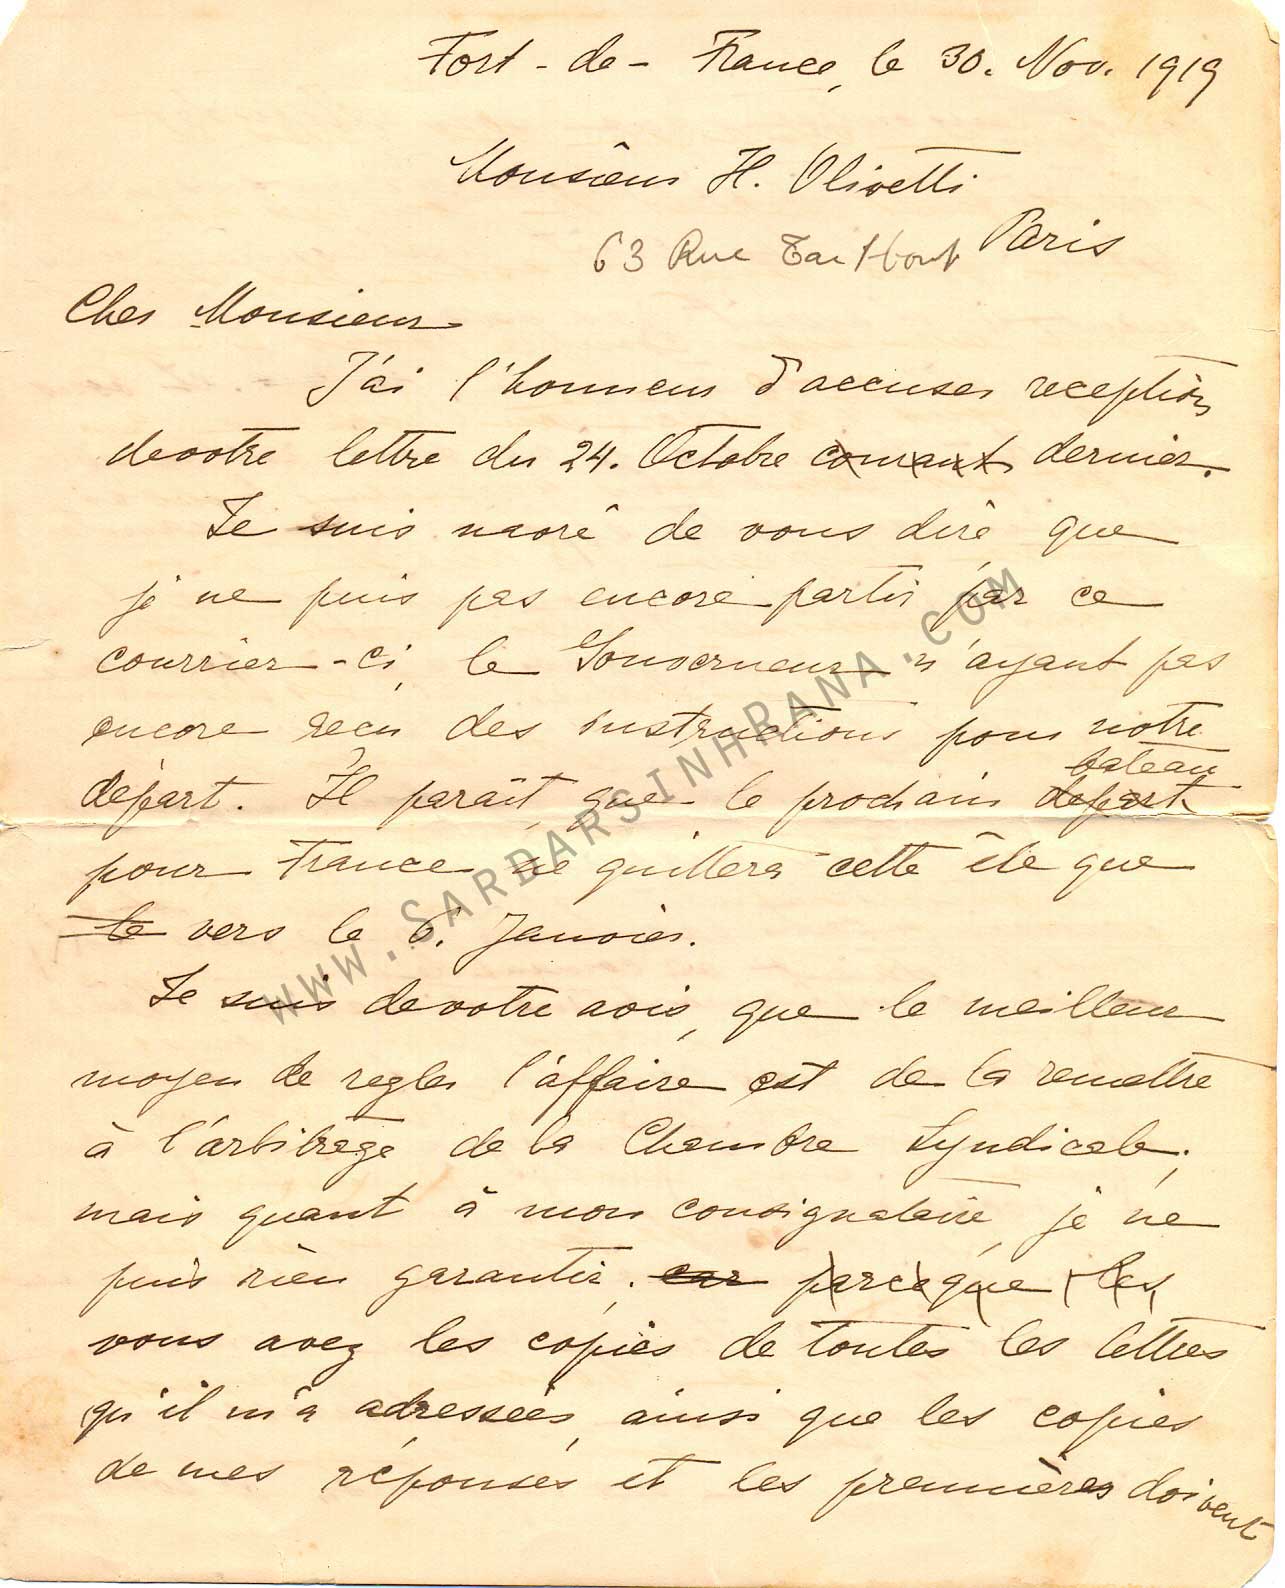 Fort-de-France, le 30. Nov. 1919
Monsieur H. Olivetti
Paris
63 Rue Taitbout
Cher Monsieur
J'ai l'honneur d'accuser reception
de votre lettre du 24. Octobre courant dernier.
Je suis navré de vous dire que
je ne puis pas encore partir par ce
courrier-ci, le Gouverneur n'ayant pas
encore reçu des instructions pour notre
bateau
départ. Il parait que le prochain depart
pour France ne quittera cette île que
le vers le 6. Janvier.
Je suis de votre avis, que le meilleur
moyen de regler l'affaire est de la remettre
à l'arbitrage de la Chambre Syndicale;
mais quant à mon consignataire, je ne
puis rien garantir; car parce que les
vous avez les copies de toutes les lettres
qu'il m'a adressées, ainsi que les copies
de mes réponses et les premières doivent
WWW.SARDARSINHRANA.COM